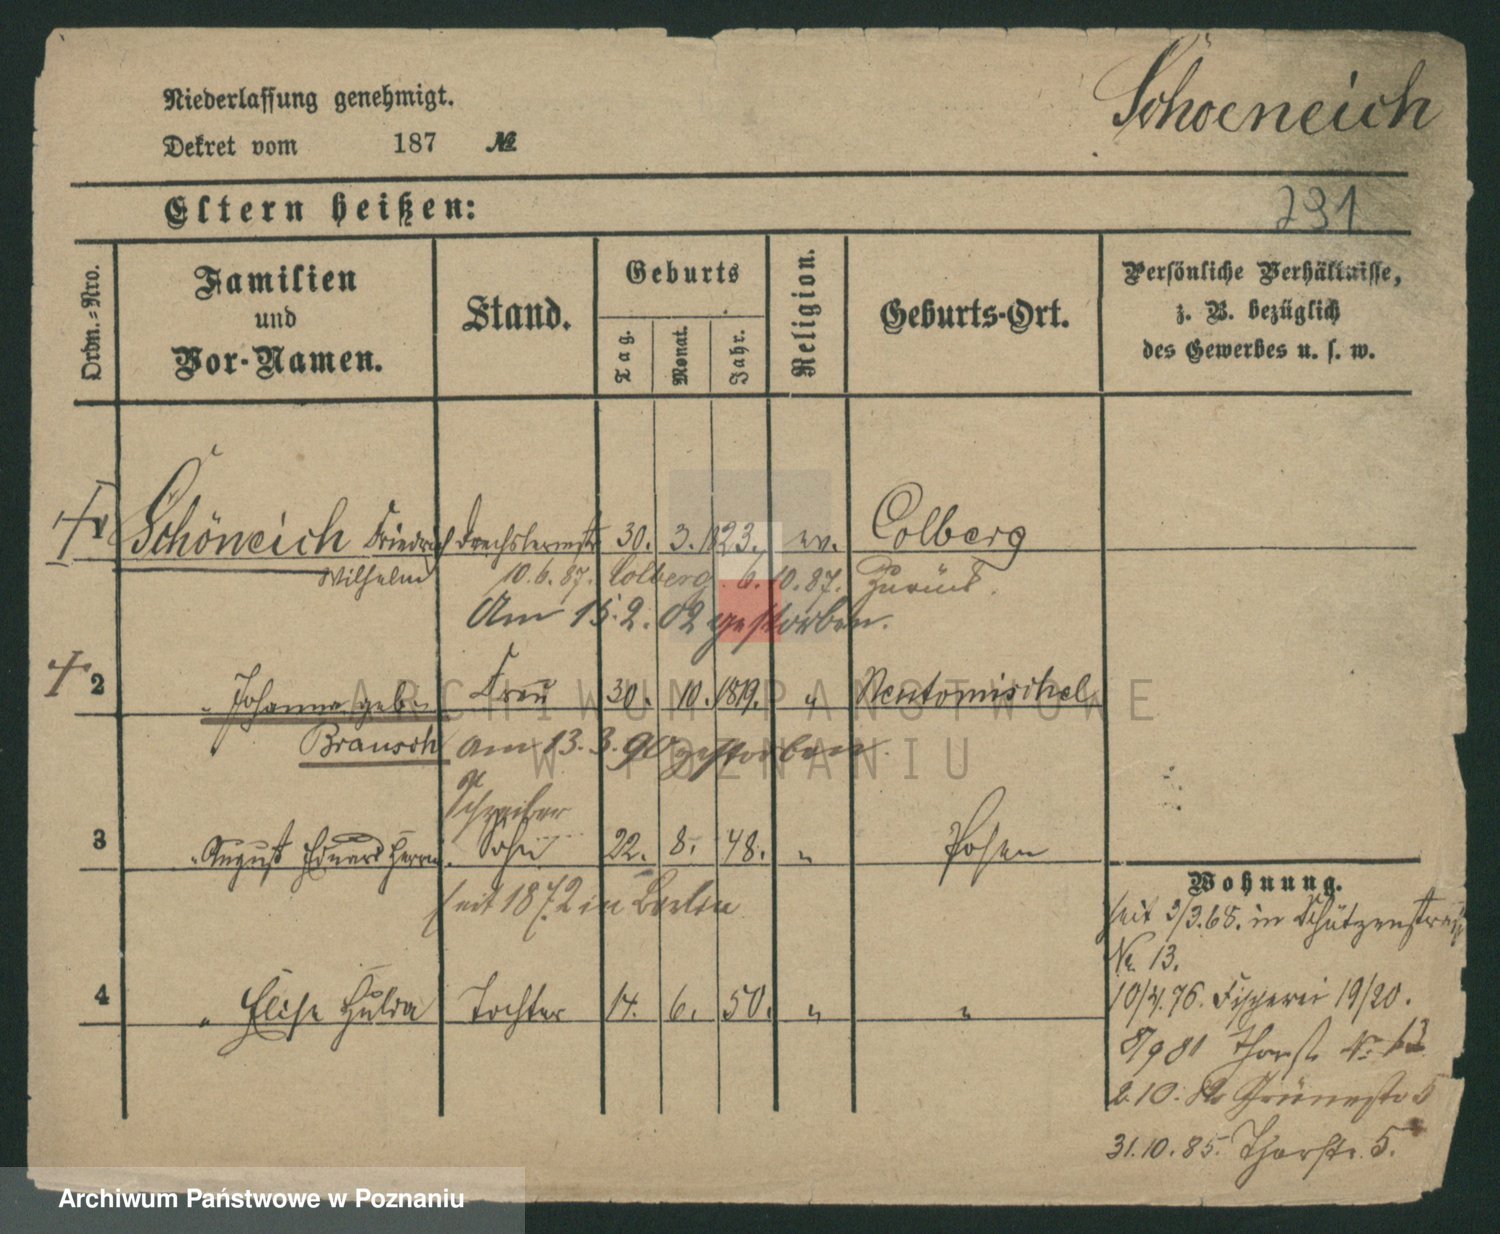 Schoeneich
Niederlassung genehmigt.
Dekret vom 187 №
291
Eltern heißen:
Ordn.-Nro.
Familien
und
Vor-Namen.
Stand.
Geburts
Tag.
Monat.
Jahr.
Religion.
Geburts-Ort.
Persönliche Verhältnisse,
z. B. bezüglich
des Gewerbes u. s. w.
Schöneich Friedrich Drechslermstr 30. 3. 1823. ev. Colberg
Wilhelm 10.6.87. Colberg. 6.10.87. Zurück.
Am 15.2.02 gestorben.
2 " Johanna geb. Frau 30. 10. 1819. " Neutomischel
Brausch am 13.3.90 gestorben.
Schreiber
3 " August Eduard Herrm. Sohn 22. 8. 48. " Posen
seit 1872 in Berlin
4 " Elise Hulda Tochter 14. 6. 50. " "
Wohnung.
seit 3/3.68. in Schützenstraße
No 13.
10/4.76. Fischerei 19/20.
8/9 81 Thorst. No 13
2.10. Grünestr 5
31.10.85. Thorstr. 5.
ARCHIWUM PAŃSTWOWE
W POZNANIU
Archiwum Państwowe w Poznaniu